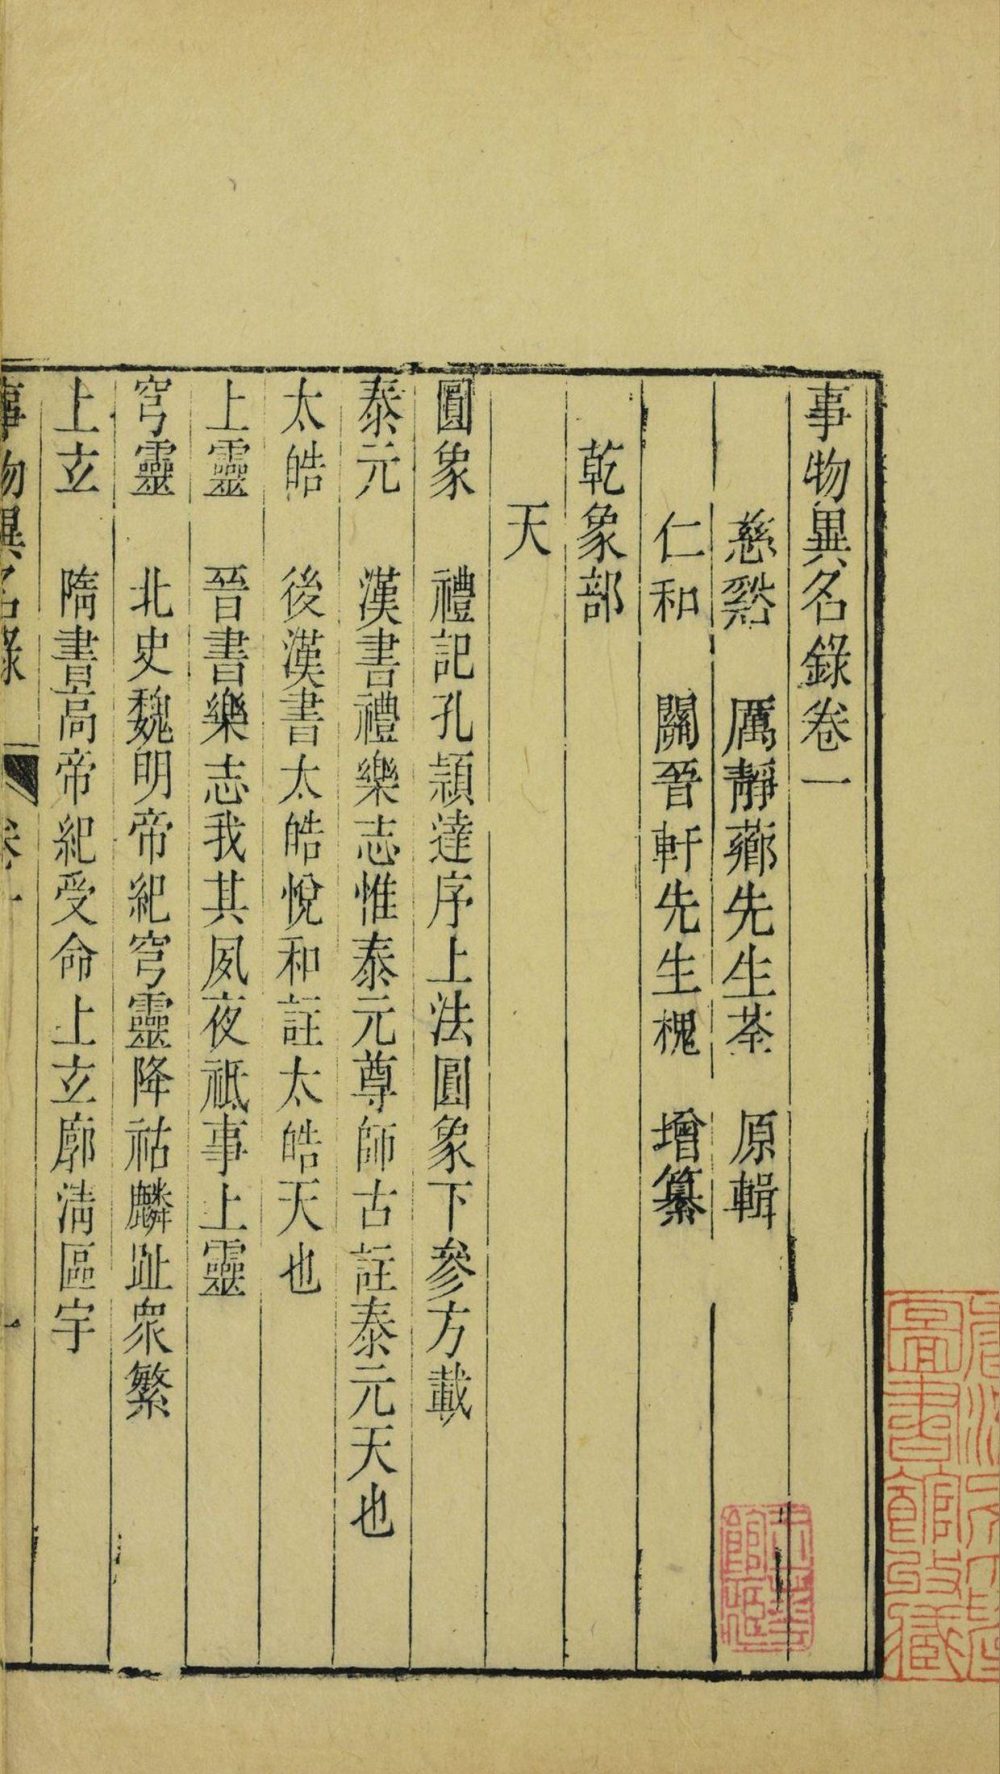 事物異名錄卷一
慈谿 厲靜薌先生荃 原輯
仁和 關晉軒先生槐 增纂
乾象部
天
圓象 禮記孔頴達序上法圓象下參方載
泰元 漢書禮樂志惟泰元尊師古註泰元天也
太皓 後漢書太皓悅和註太皓天也
上靈 晉書樂志我其夙夜祗事上靈
穹靈 北史魏明帝紀穹靈降祐麟趾衆繁
上玄 隋書高帝紀受命上玄廓清區宇
事物異名錄 卷一 一